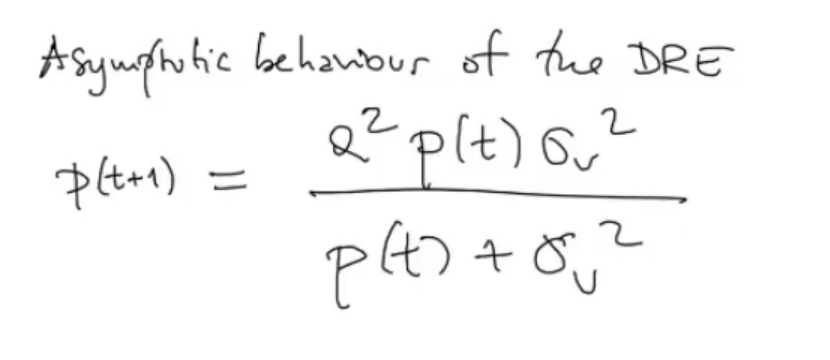 Asymptotic behaviour of the DRE
p(t+1) = a² p(t) σᵥ² / p(t) + σᵥ²